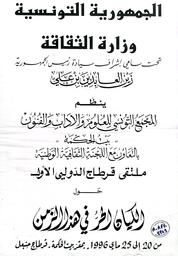 الجمهورية التونسية
وزارة الثقافة
تحت سامي إشراف سيادة رئيس الجمهورية
زين العابدين بن علي
ينظم
المجمع التونسي للعلوم والآداب والفنون
بيت الحكمة
بالتعاون مع اللجنة الثقافية الوطنية
ملتقى قرطاج الدولي الأول
حول
الكيان الحر في هذا الزمن
من 20 إلى 25 ماي 1996، بمقر بيت الحكمة، قرطاج حنبعل